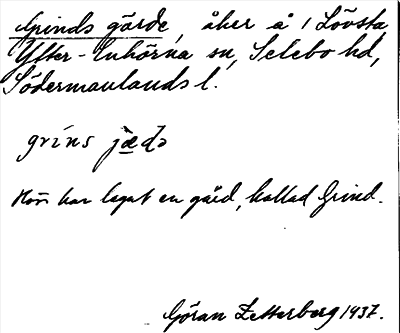 Grinds gärde, åker å 1 Lövsta,
Ytter-Enhörna sn, Selebo hd,
Södermanlands l.
grins jædə
Här har legat en gård, kallad Grind.
Göran Zetterberg 1937.